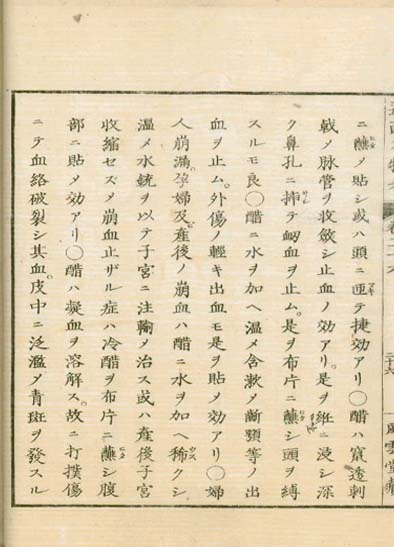 ニ蘸乄貼シ或ハ頭ニ匝テ捷効アリ〇醋ハ竄透刺
戟乄脉管ヲ收斂シ止血ノ効アリ。是ヲ紙ニ浸シ深
ク鼻孔ニ挿テ衂血ヲ止ム。是ヲ布片ニ蘸シ頭ヲ縛
スルモ良〇醋ニ水ヲ加ヘ温メ含漱乄齗頸等ノ出
血ヲ止ム。外傷ノ輕キ出血モ是ヲ貼乄効アリ〇婦
人崩漏。孕婦及產後ノ崩血ハ醋ニ水ヲ加ヘ稀クシ
温メ水銃ヲ以テ子宮ニ注輸乄治ス或ハ產後子宮
收縮セズ乄崩血止ザル症ハ冷醋ヲ布片ニ蘸シ腹
部ニ貼乄効アリ〇醋ハ凝血ヲ溶解ス。故ニ打撲傷
ニテ血絡破裂シ其血。皮中ニ泛濫乄青斑ヲ發スル